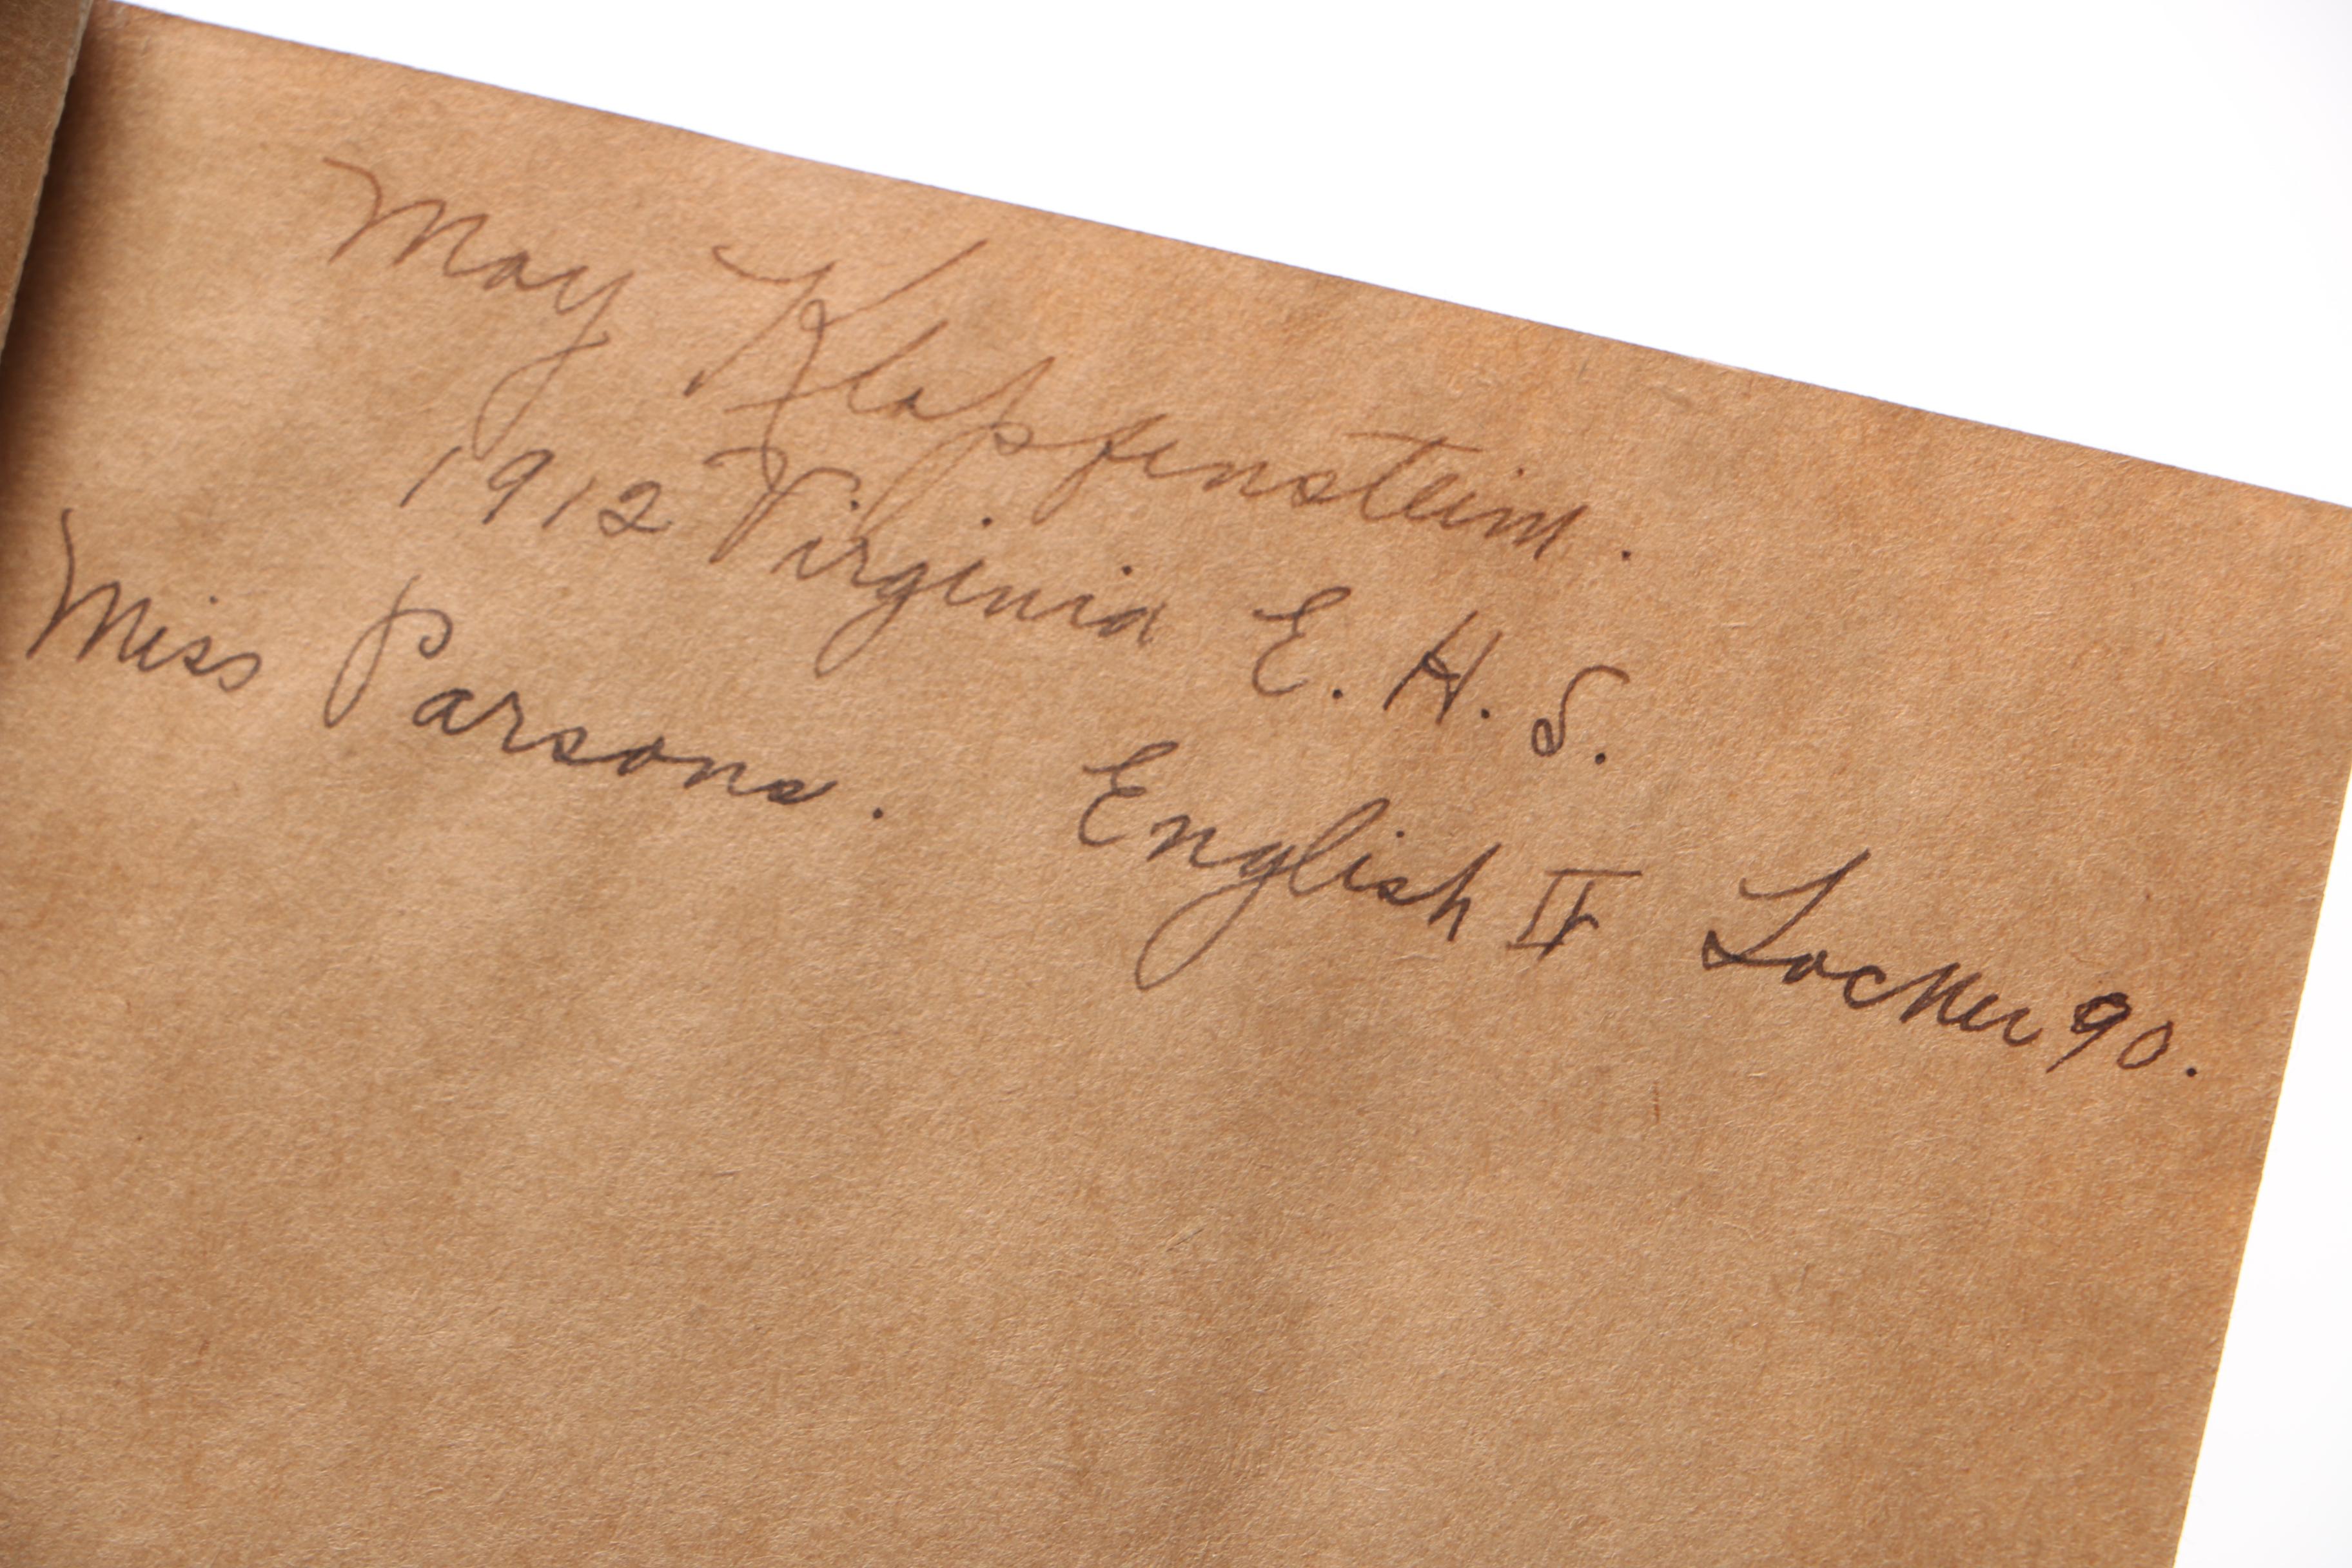 May Klopfenstein.
1912 Virginia E. H. S.
Miss Parsons. English II Locker 90.